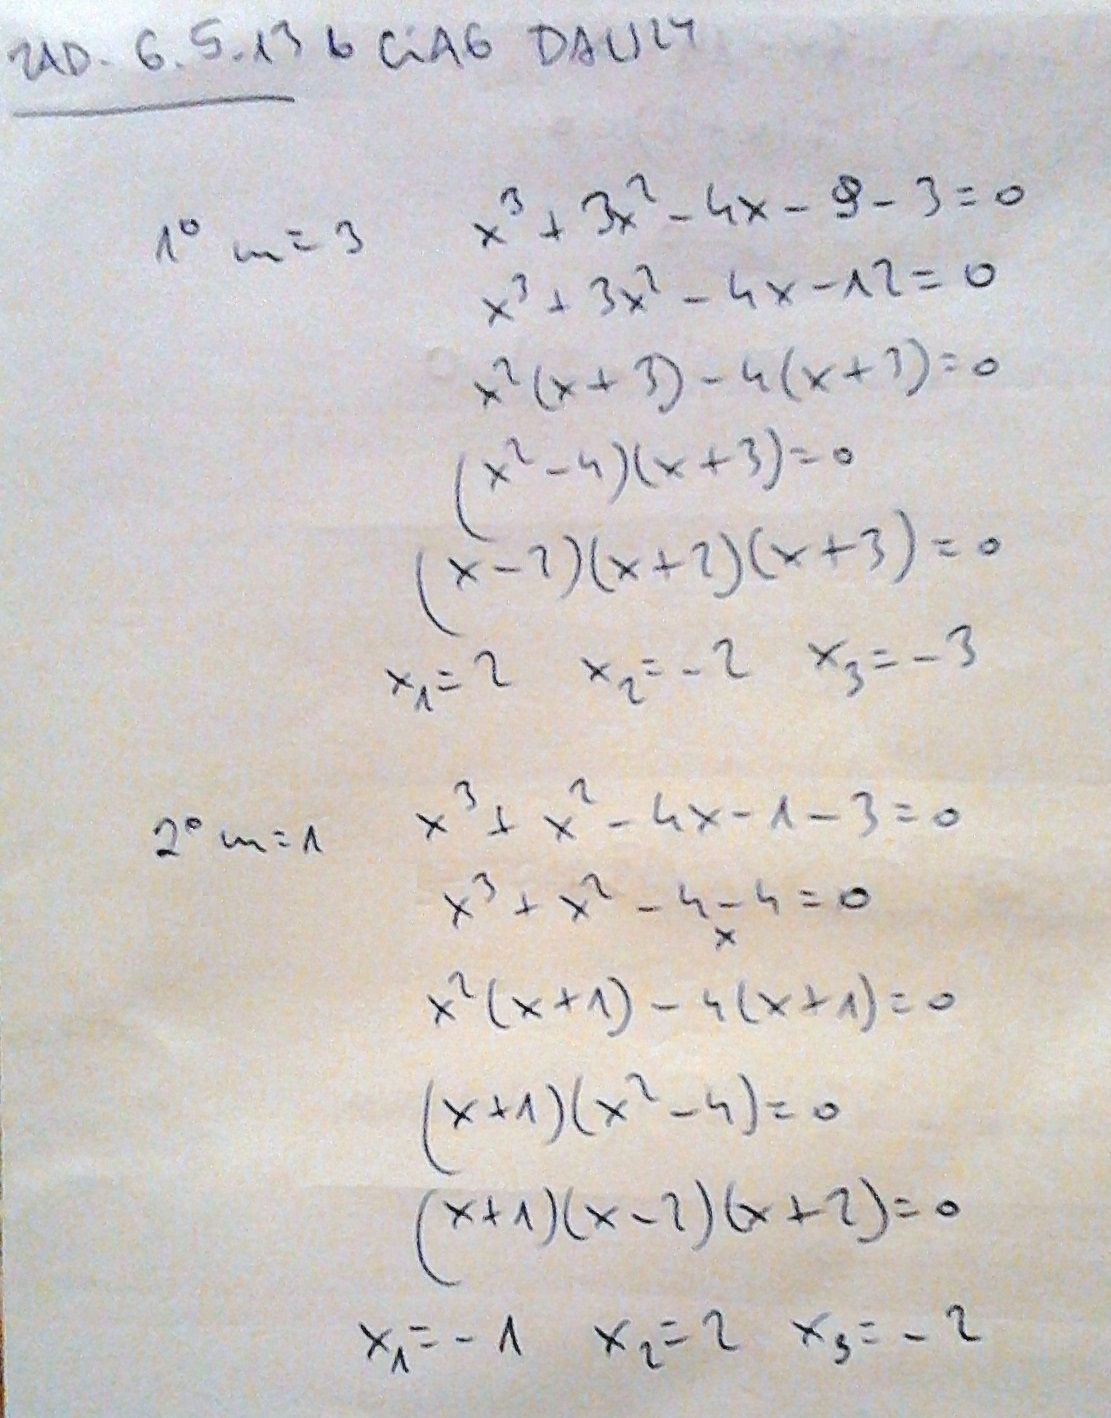 ZAD. 6.5.13 b CIĄG DALSZY
1° m=3 x³+3x²-4x-9-3=0
x³+3x²-4x-12=0
x²(x+3)-4(x+3)=0
(x²-4)(x+3)=0
(x-2)(x+2)(x+3)=0
x₁=2 x₂=-2 x₃=-3
2° m=1 x³+x²-4x-1-3=0
x³+x²-4x-4=0
x²(x+1)-4(x+1)=0
(x+1)(x²-4)=0
(x+1)(x-2)(x+2)=0
x₁=-1 x₂=2 x₃=-2